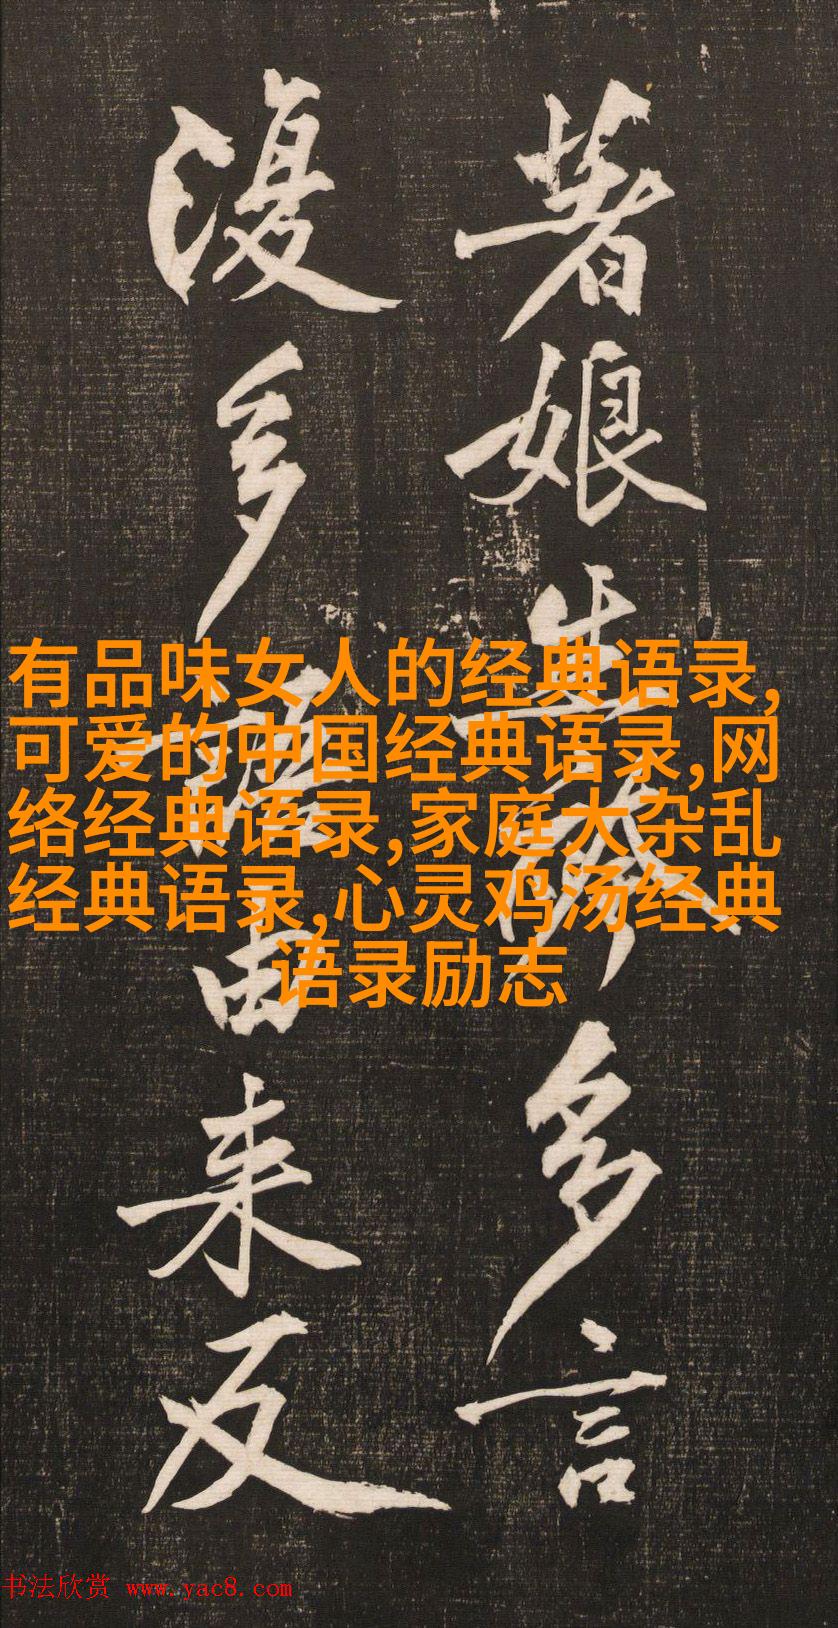 著娘生多言
復多由来反
有品味女人的经典语录,
可爱的中国经典语录,网
络经典语录,家庭大杂乱
经典语录,心灵鸡汤经典
语录励志
书法欣赏 www.yac8.com